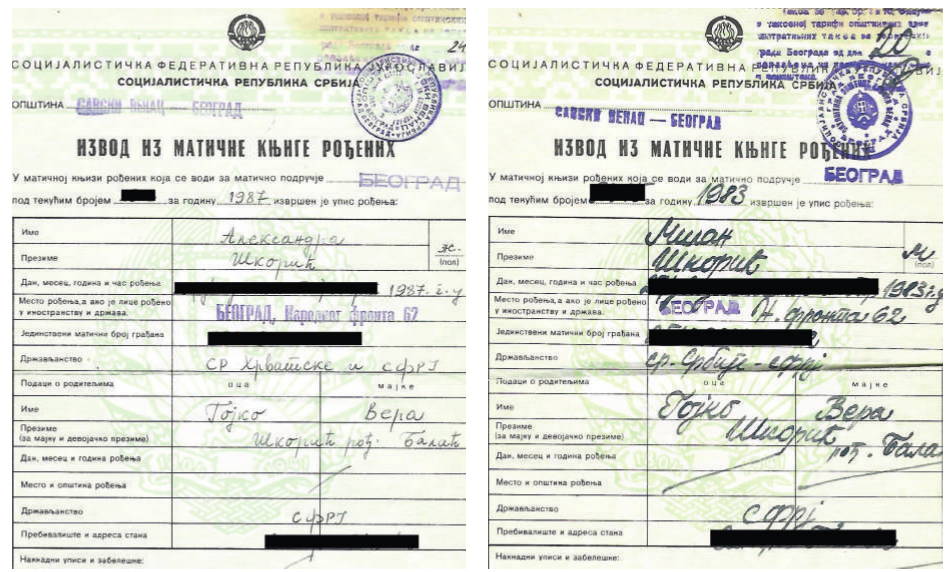 у таксеној тарифи општинских
24
СОЦИЈАЛИСТИЧКА ФЕДЕРАТИВНА РЕПУБЛИКА ЈУГОСЛАВИЈ
СОЦИЈАЛИСТИЧКА РЕПУБЛИКА СРБИЈА
ОПШТИНА САВСКИ ВЕНАЦ — БЕОГРАД
ИЗВОД ИЗ МАТИЧНЕ КЊИГЕ РОЂЕНИХ
У матичној књизи рођених која се води за матично подручје БЕОГРАД
под текућим бројем за годину 1987 извршен је упис рођења:
Име Александра
Презиме Шкорић ж. (пол)
Дан, месец, година и час рођења 1987. г. у
Место рођења, а ако је лице рођено у иностранству и држава. БЕОГРАД, Народног фронта 62
Јединствени матични број грађана
Држављанство СР Хрватске и СФРЈ
Подаци о родитељима оца мајке
Име Гојко Вера
Презиме (за мајку и девојачко презиме) Шкорић рођ. Балаћ
Дан, месец и година рођења
Место и општина рођења
Држављанство СФРЈ
Пребивалиште и адреса стана
Накнадни уписи и забелешке:
у таксеној тарифи општинских
20
СОЦИЈАЛИСТИЧКА ФЕДЕРАТИВНА РЕПУБЛИКА
СОЦИЈАЛИСТИЧКА РЕПУБЛИКА СРБИЈА
ОПШТИНА САВСКИ ВЕНАЦ — БЕОГРАД
ИЗВОД ИЗ МАТИЧНЕ КЊИГЕ РОЂЕНИХ
У матичној књизи рођених која се води за матично подручје БЕОГРАД
под текућим бројем за годину 1983 извршен је упис рођења:
Име Милан
Презиме Шкорић м (пол)
Дан, месец, година и час рођења 1983 г. у
Место рођења, а ако је лице рођено у иностранству и држава. БЕОГРАД Н. фронта 62
Јединствени матични број грађана
Држављанство ср. Србије - сфрј
Подаци о родитељима оца мајке
Име Гојко Вера
Презиме (за мајку и девојачко презиме) Шкорић рођ. Бала
Дан, месец и година рођења
Место и општина рођења
Држављанство сфрј
Пребивалиште и адреса стана
Накнадни уписи и забелешке: